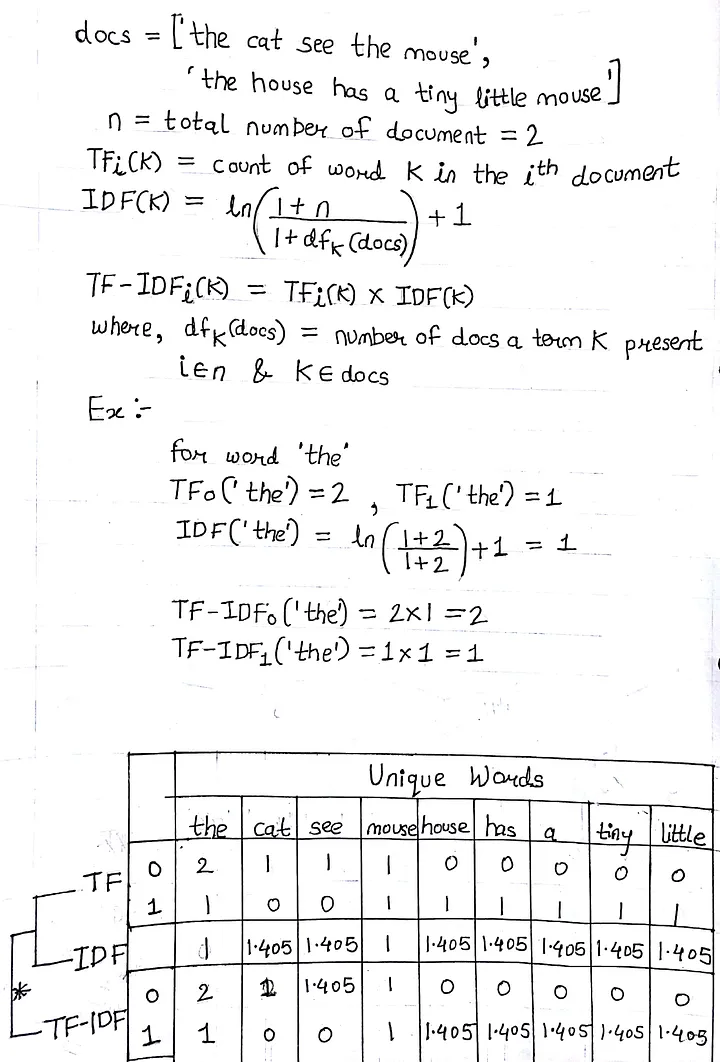 docs = ['the cat see the mouse',
'the house has a tiny little mouse']
n = total number of document = 2
TFi(K) = count of word K in the ith document
IDF(K) = ln(1+n / 1+dfK(docs)) + 1
TF-IDFi(K) = TFi(K) x IDF(K)
where, dfK(docs) = number of docs a term K present
i∈n & K∈docs
Ex :-
for word 'the'
TF0('the') = 2 , TF1('the') = 1
IDF('the') = ln(1+2 / 1+2) + 1 = 1
TF-IDF0('the') = 2x1 = 2
TF-IDF1('the') = 1x1 = 1
Unique Words
the cat see mouse house has a tiny little
TF 0 2 1 1 1 0 0 0 0 0
1 1 0 0 1 1 1 1 1 1
IDF 1 1.405 1.405 1 1.405 1.405 1.405 1.405 1.405
* 0 2 1.405 1 0 0 0 0 0
TF-IDF 1 1 0 0 1 1.405 1.405 1.405 1.405 1.405